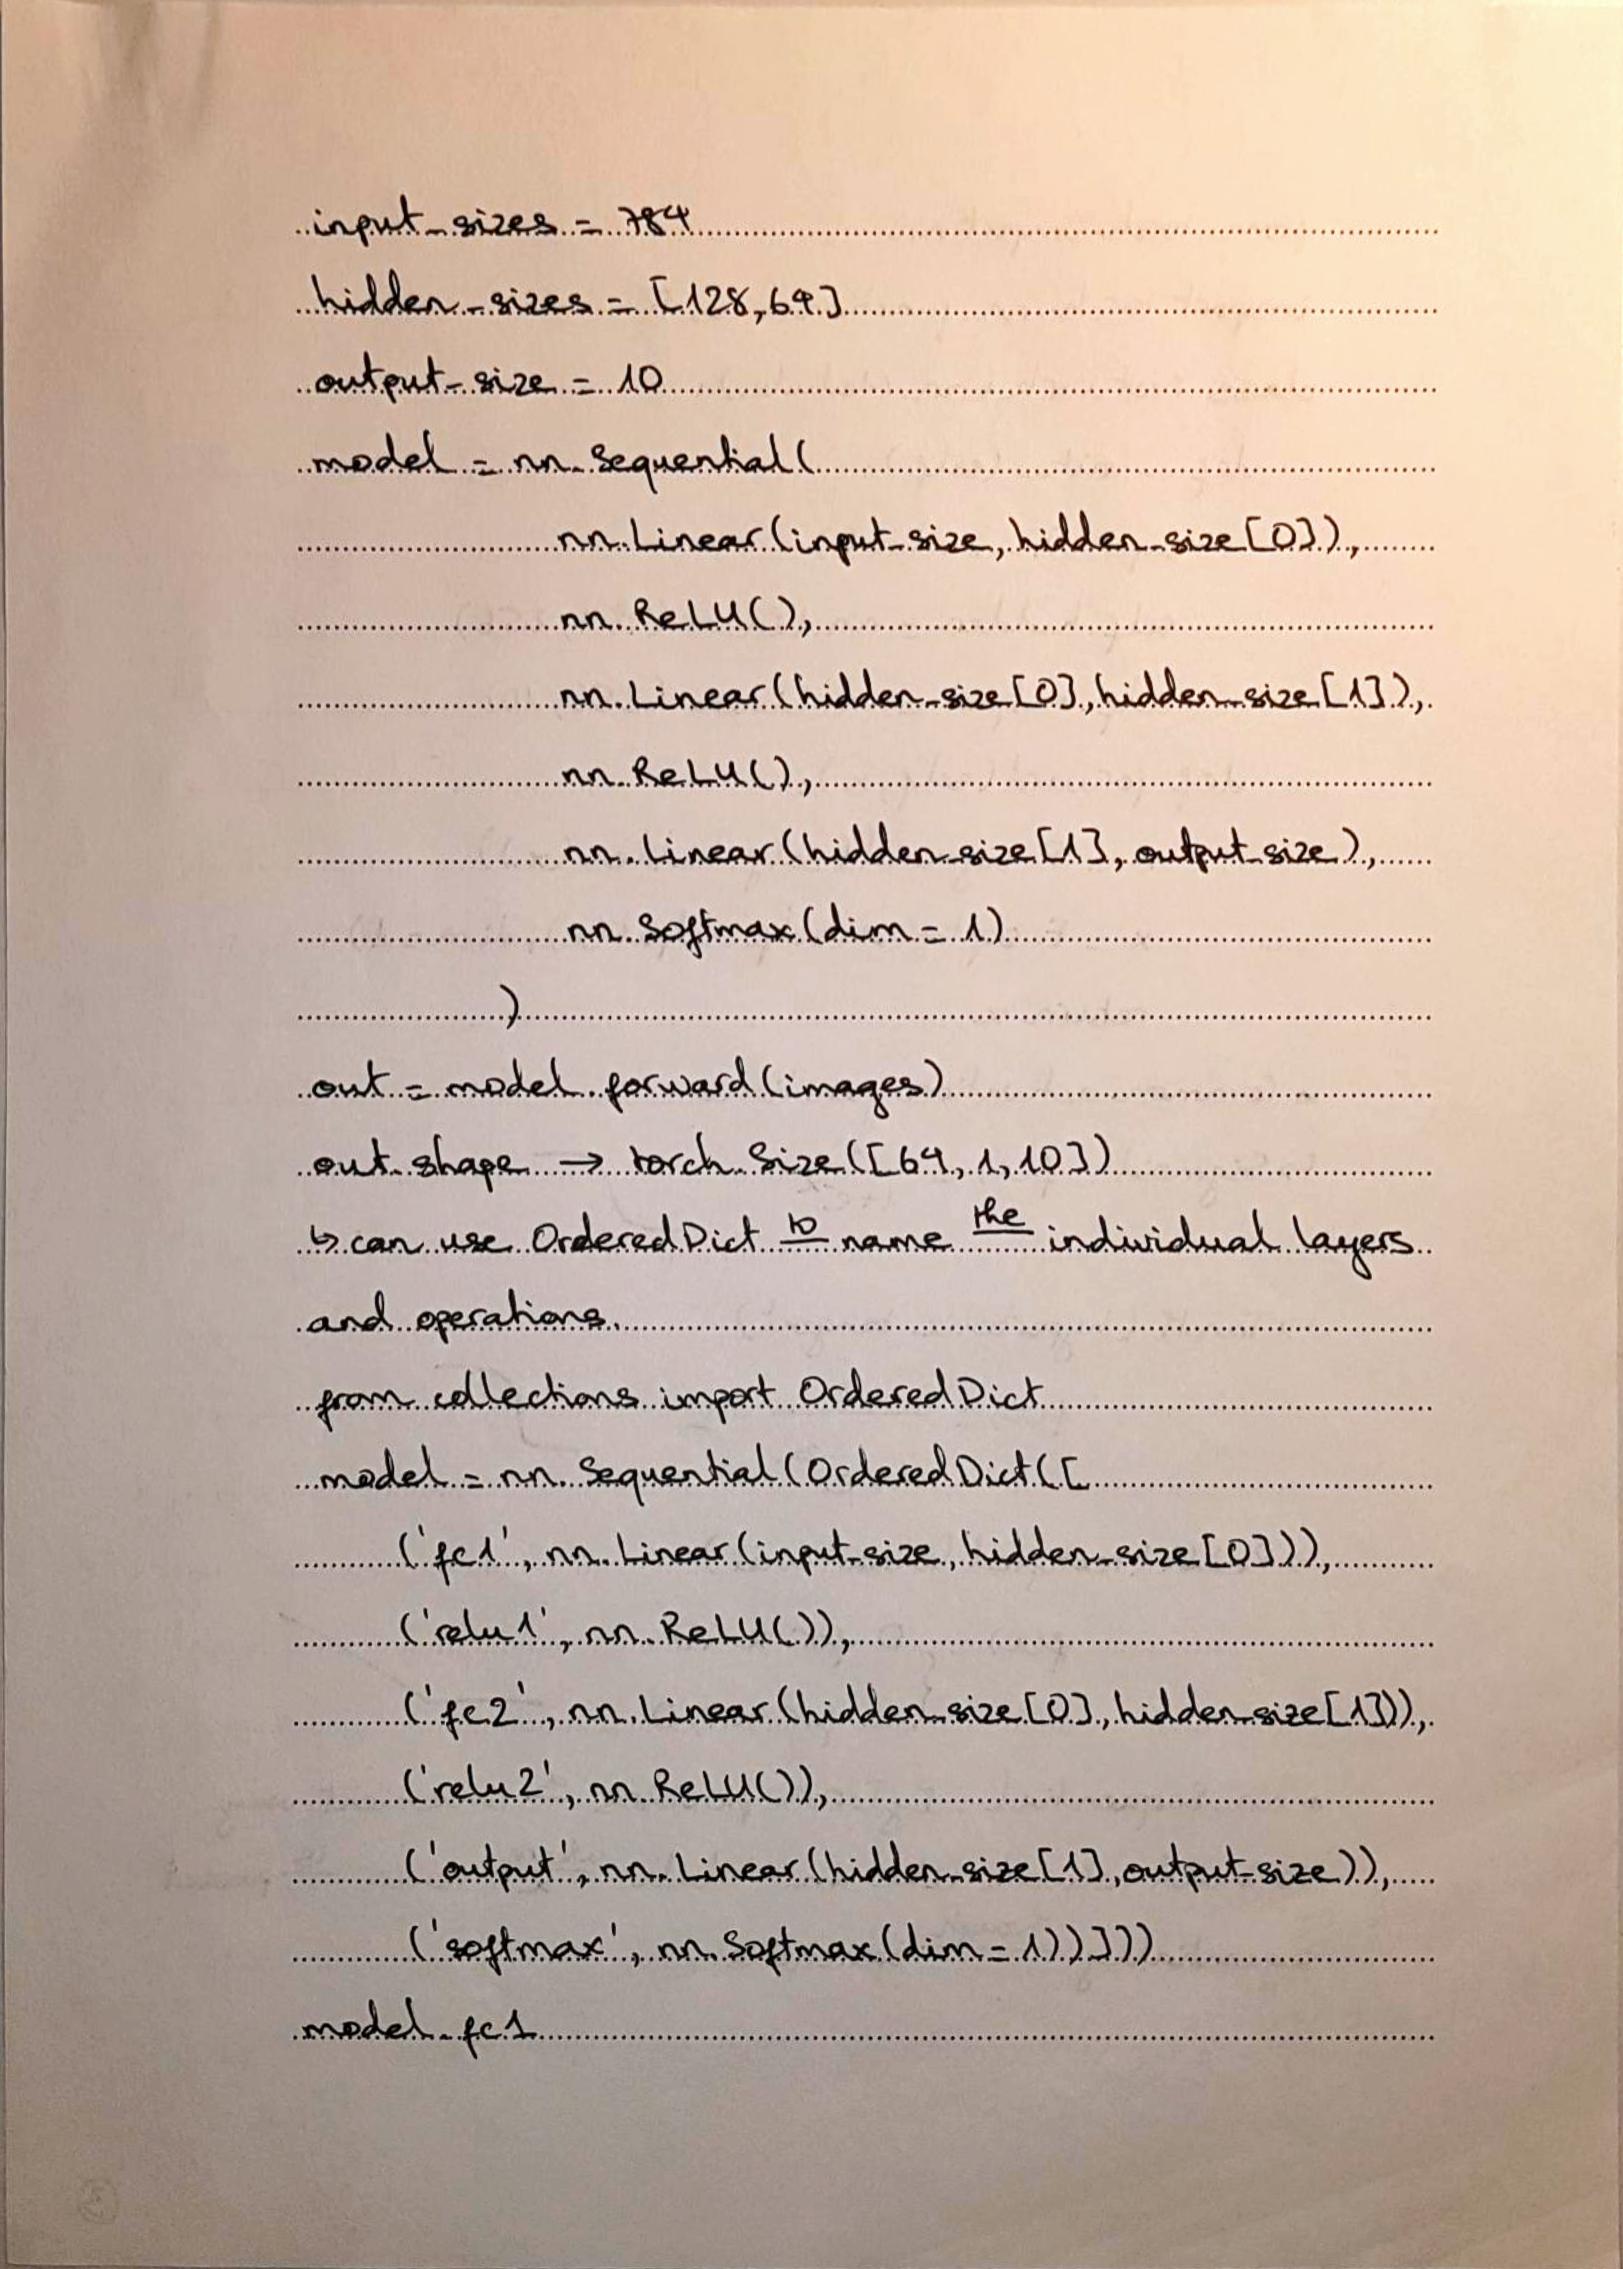 input_sizes = 784
hidden_sizes = [128,64]
output_size = 10
model = nn.Sequential(
nn.Linear(input_size, hidden_size[0]),
nn.ReLU(),
nn.Linear(hidden_size[0], hidden_size[1]),
nn.ReLU(),
nn.Linear(hidden_size[1], output_size),
nn.Softmax(dim = 1)
)
out = model.forward(images)
out.shape → torch.Size([64, 1, 10])
↳ can use OrderedDict to name the individual layers
and operations.
from collections import OrderedDict
model = nn.Sequential(OrderedDict([
('fc1', nn.Linear(input_size, hidden_size[0])),
('relu1', nn.ReLU()),
('fc2', nn.Linear(hidden_size[0], hidden_size[1])),
('relu2', nn.ReLU()),
('output', nn.Linear(hidden_size[1], output_size)),
('softmax', nn.Softmax(dim = 1))]))
model.fc1